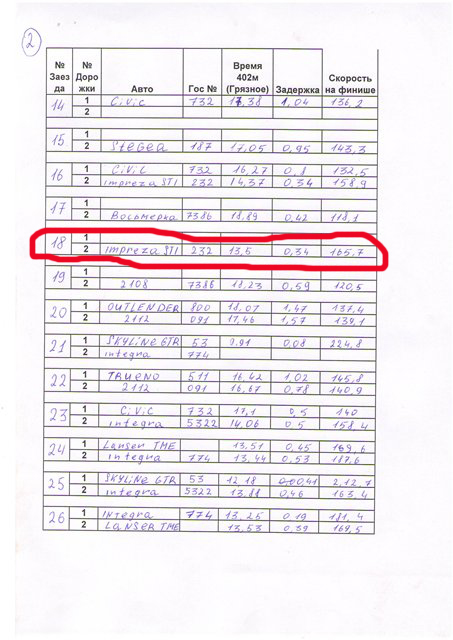 2
№ Заезда | № Дорожки | Авто | Гос № | Время 402м (Грязное) | Задержка | Скорость на финише
14 | 1 | Civic | 732 | 17,38 | 1,04 | 136,2
2
15 | 1
2 | Stegea | 187 | 17,05 | 0,95 | 143,3
16 | 1 | Civic | 732 | 16,27 | 0,8 | 132,5
2 | impreza STI | 232 | 14,37 | 0,34 | 158,9
17 | 1
2 | Восьмерка | 7386 | 18,89 | 0,42 | 118,1
18 | 1
2 | impreza STI | 232 | 13,5 | 0,34 | 165,7
19 | 1
2 | 2108 | 7386 | 18,23 | 0,59 | 120,5
20 | 1 | OUTLENDER | 800 | 18,07 | 1,47 | 137,4
2 | 2112 | 091 | 17,46 | 1,57 | 139,1
21 | 1 | SKYLINE GTR | 53 | 9,91 | 0,08 | 224,8
2 | integra | 774
22 | 1 | TRUENO | 511 | 16,42 | 1,02 | 145,8
2 | 2112 | 091 | 16,67 | 0,78 | 140,9
23 | 1 | Civic | 732 | 17,1 | 0,5 | 140
2 | integra | 5322 | 14,06 | 0,5 | 158,4
24 | 1 | Lanser TME | 13,51 | 0,45 | 169,6
2 | integra | 774 | 13,44 | 0,53 | 187,6
25 | 1 | SKYLINE GTR | 53 | 12,18 | 0,41 | 212,7
2 | integra | 5322 | 13,81 | 0,46 | 163,4
26 | 1 | Integra | 774 | 13,25 | 0,19 | 181,4
2 | LANSER TME | 13,53 | 0,39 | 169,5